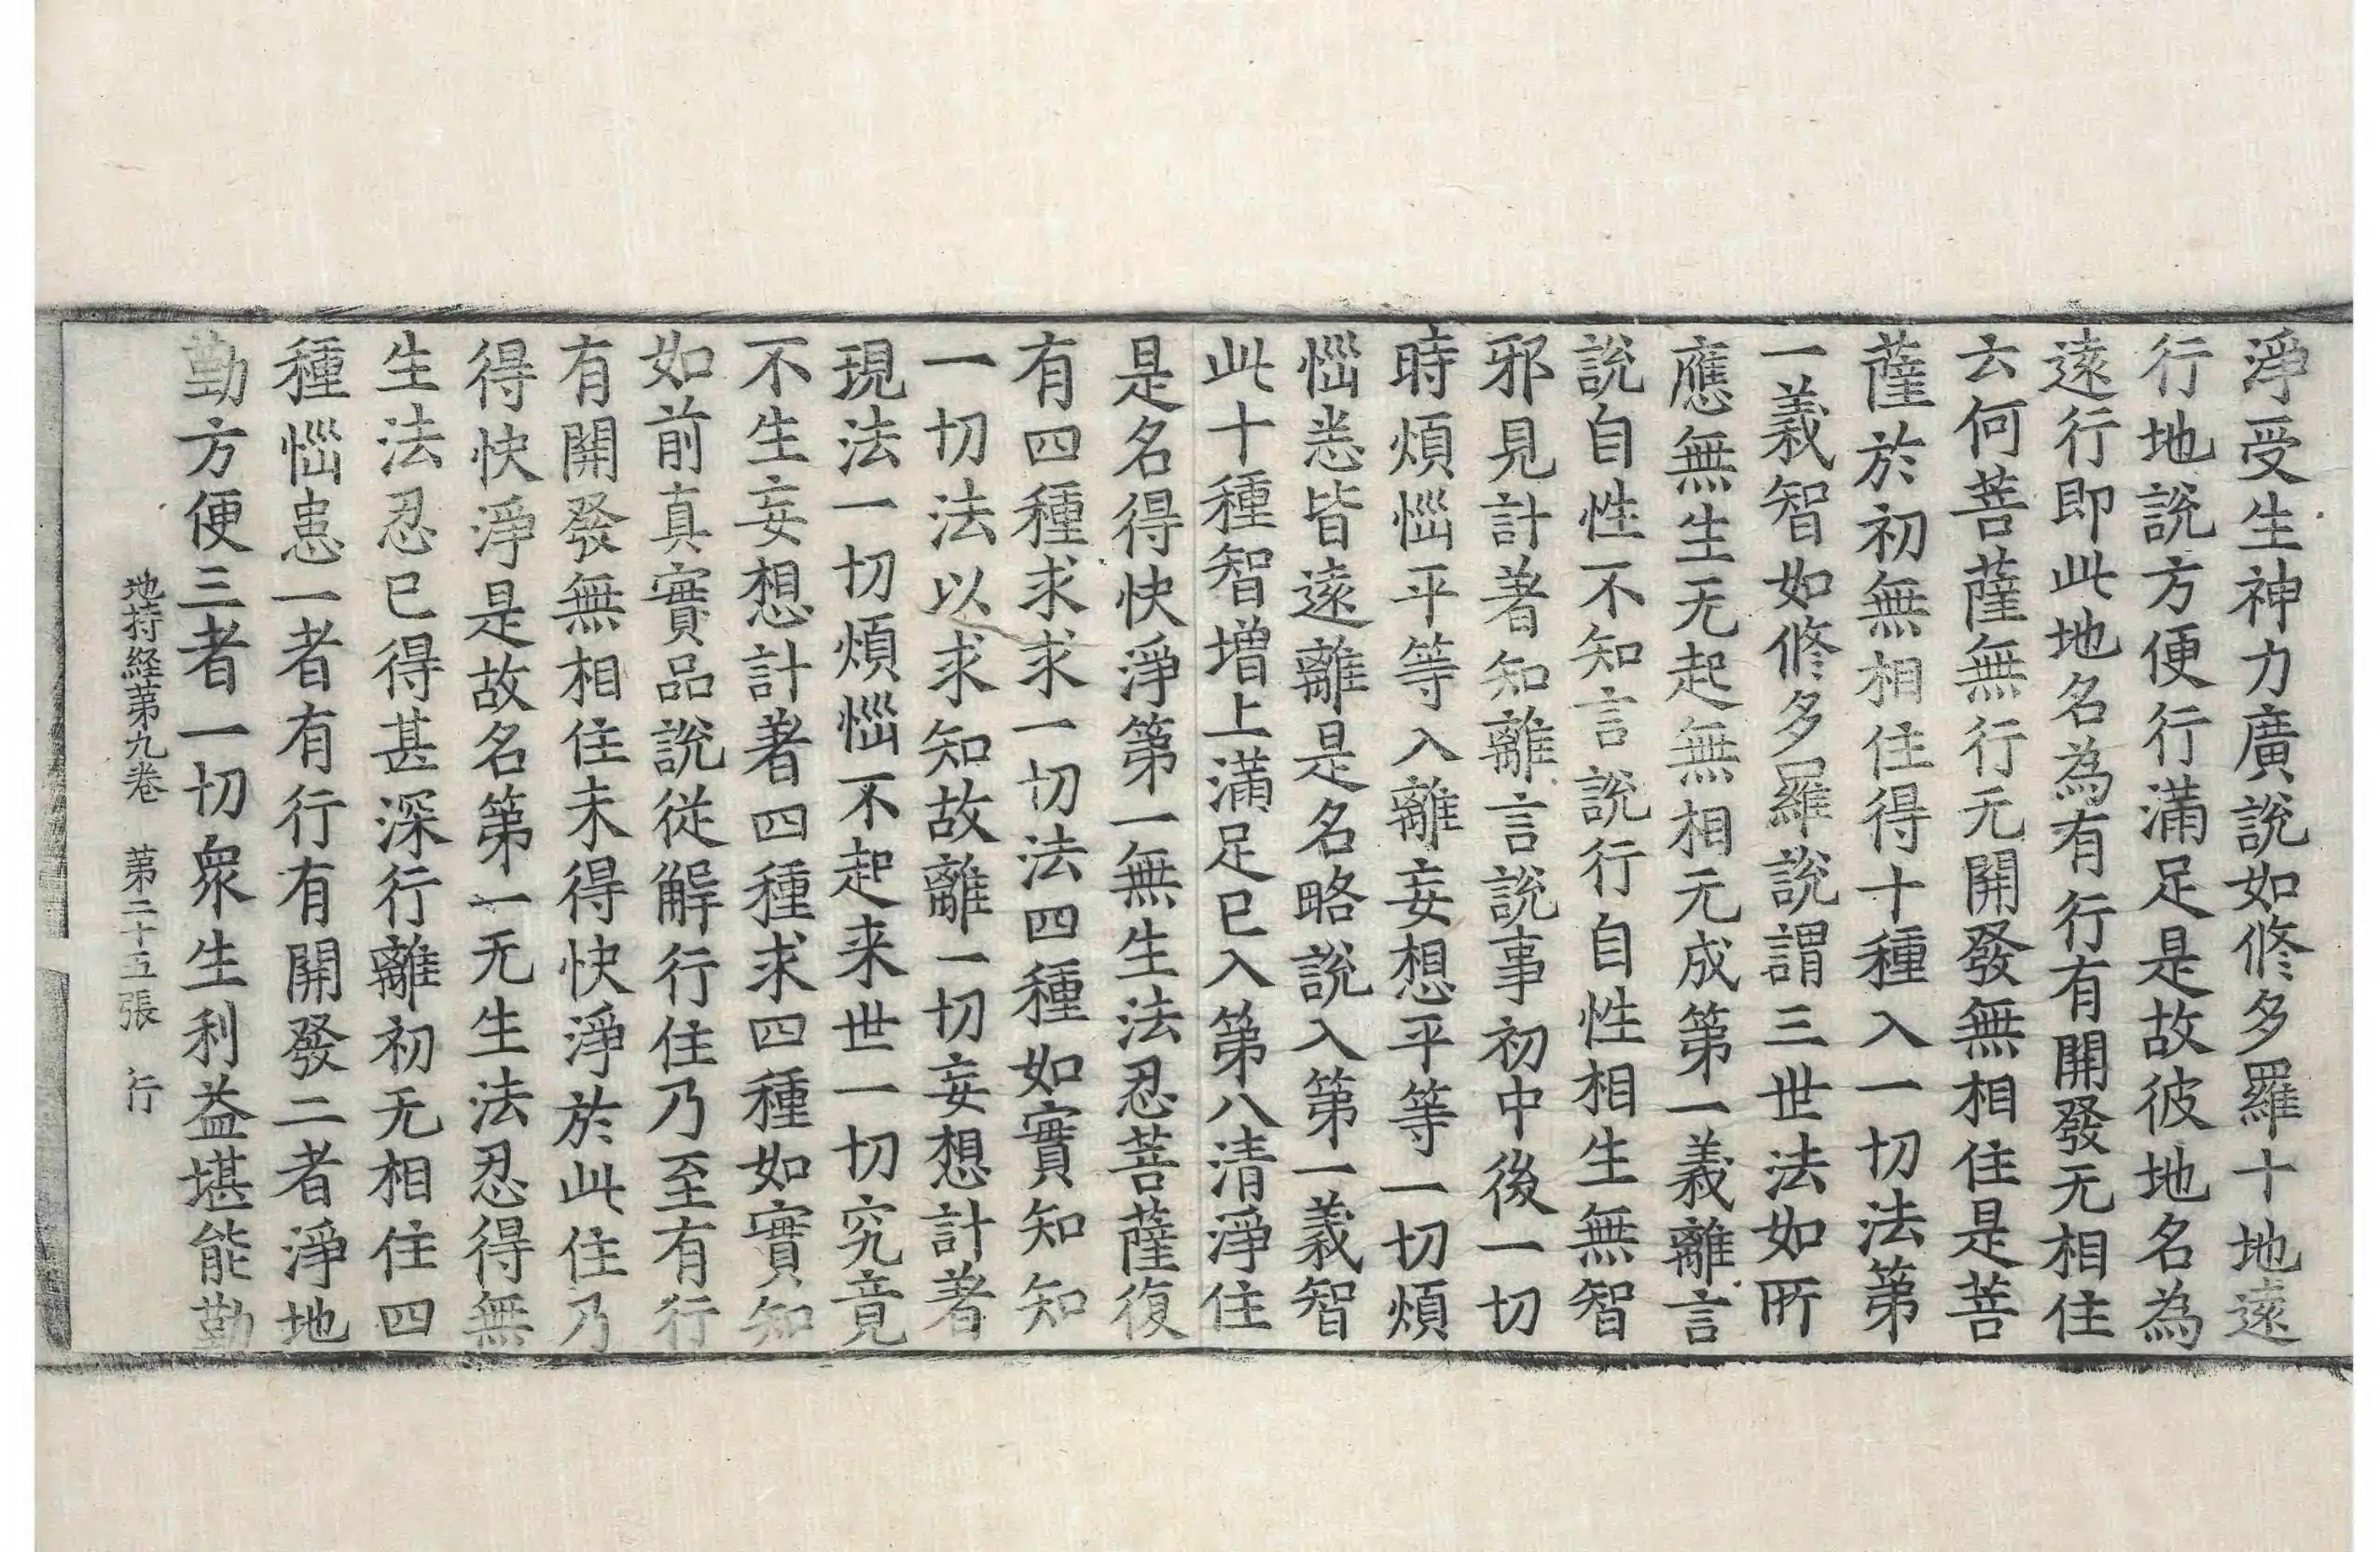 淨受生神力廣說如修多羅十地遠
行地說方便行滿足是故彼地名為
遠行即此地名為有行有開發无相住
云何菩薩無行无開發無相住是菩
薩於初無相住得十種入一切法第
一義智如修多羅說謂三世法如所
應無生无起無相无成第一義離言
說自性不知言說行自性相生無智
邪見計著知離言說事初中後一切
時煩惱平等入離妄想平等一切煩
惱悉皆遠離是名略說入第一義智
此十種智增上滿足已入第八清淨住
是名得快淨第一無生法忍菩薩復
有四種求求一切法四種如實知知
一切法以求知故離一切妄想計著
現法一切煩惱不起来世一切究竟
不生妄想計著四種求四種如實知
如前真實品說從解行住乃至有行
有開發無相住未得快淨於此住乃
得快淨是故名第一无生法忍得無
生法忍已得甚深行離初无相住四
種惱患一者有行有開發二者淨地
勤方便三者一切衆生利益堪能勤
地持経第九卷　第二十五張　行